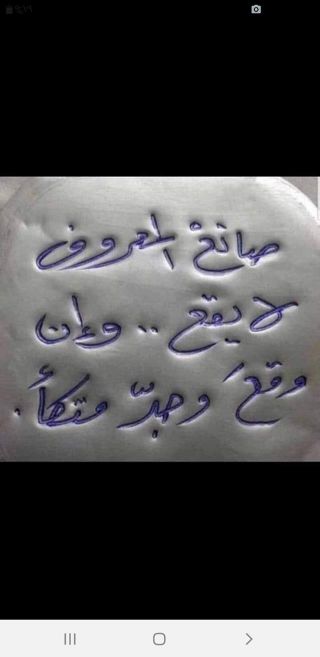 صانع المعروف
لا يقع .. وإن
وقعَ وجدّ متكأ .